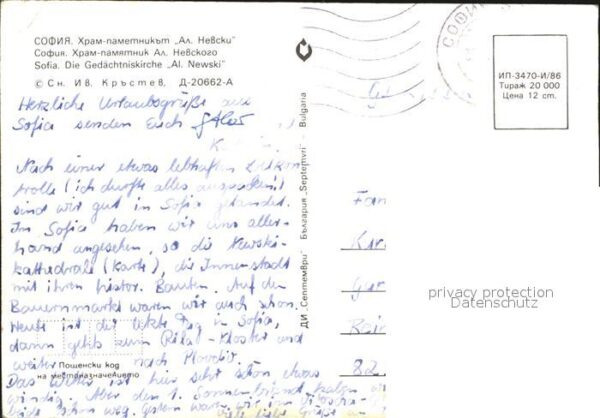 СОФИЯ. Храм-паметникът „Ал. Невски"
София. Храм-памятник Ал. Невского
Sofia. Die Gedächtniskirche „Al. Newski"
© Сн. Ив. Кръстев, Д-20662-А
Herzliche Urlaubsgrüße aus
Sofia senden Euch
Nach einer etwas lebhaften
trolle (ich durfte alles auspacken!)
sind wir gut in Sofia gelandet.
In Sofia haben wir uns aller-
hand angesehen, so die Newski-
kathedrale (Karte), die Innenstadt
mit ihren histor. Bauten. Auf dem
Bauernmarkt waren wir auch schon.
Heute ist der letzte Tag in Sofia,
dann gehts zum Rila-Kloster und
weiter nach Plovdiv.
Пощенски код
на местоназначението
Das Wetter ist hier sehr schön etwas
windig. Aber den 1. Sonnenbrand
schon weg. Gestern waren wir im Vitoscha-
Viele liebe Grüße
ДИ „Септември" България „Septemvri" - Bulgaria
СОФИЯ
ИП-3470-И/86
Тираж 20 000
Цена 12 ст.
Fam
Kar
Gar
Rei
82
privacy protection
Datenschutz